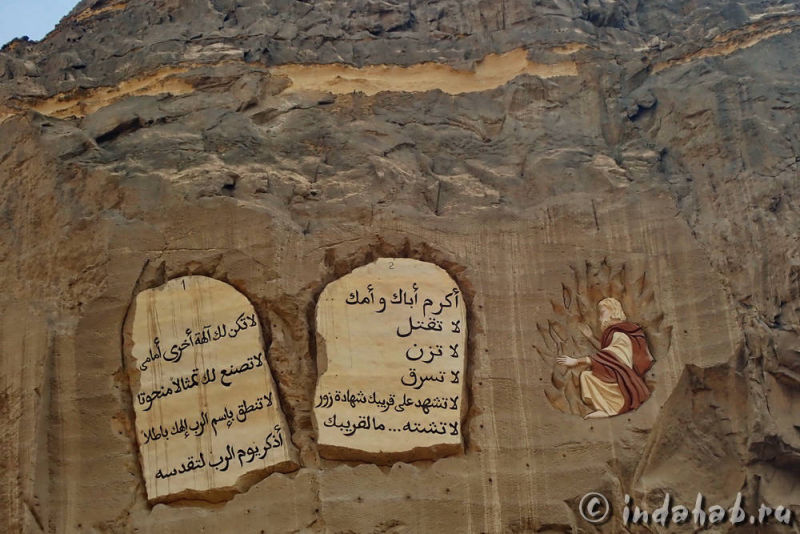 1
لا تكن لك آلهة أخرى أمامي
لا تصنع لك تمثالا منحوتا
لا تنطق بإسم الرب إلهك باطلا
أذكر يوم الرب لتقدسه
2
أكرم أباك و أمك
لا تقتل
لا تزن
لا تسرق
لا تشهد على قريبك شهادة زور
لا تشته... ما لقريبك
© indahab.ru